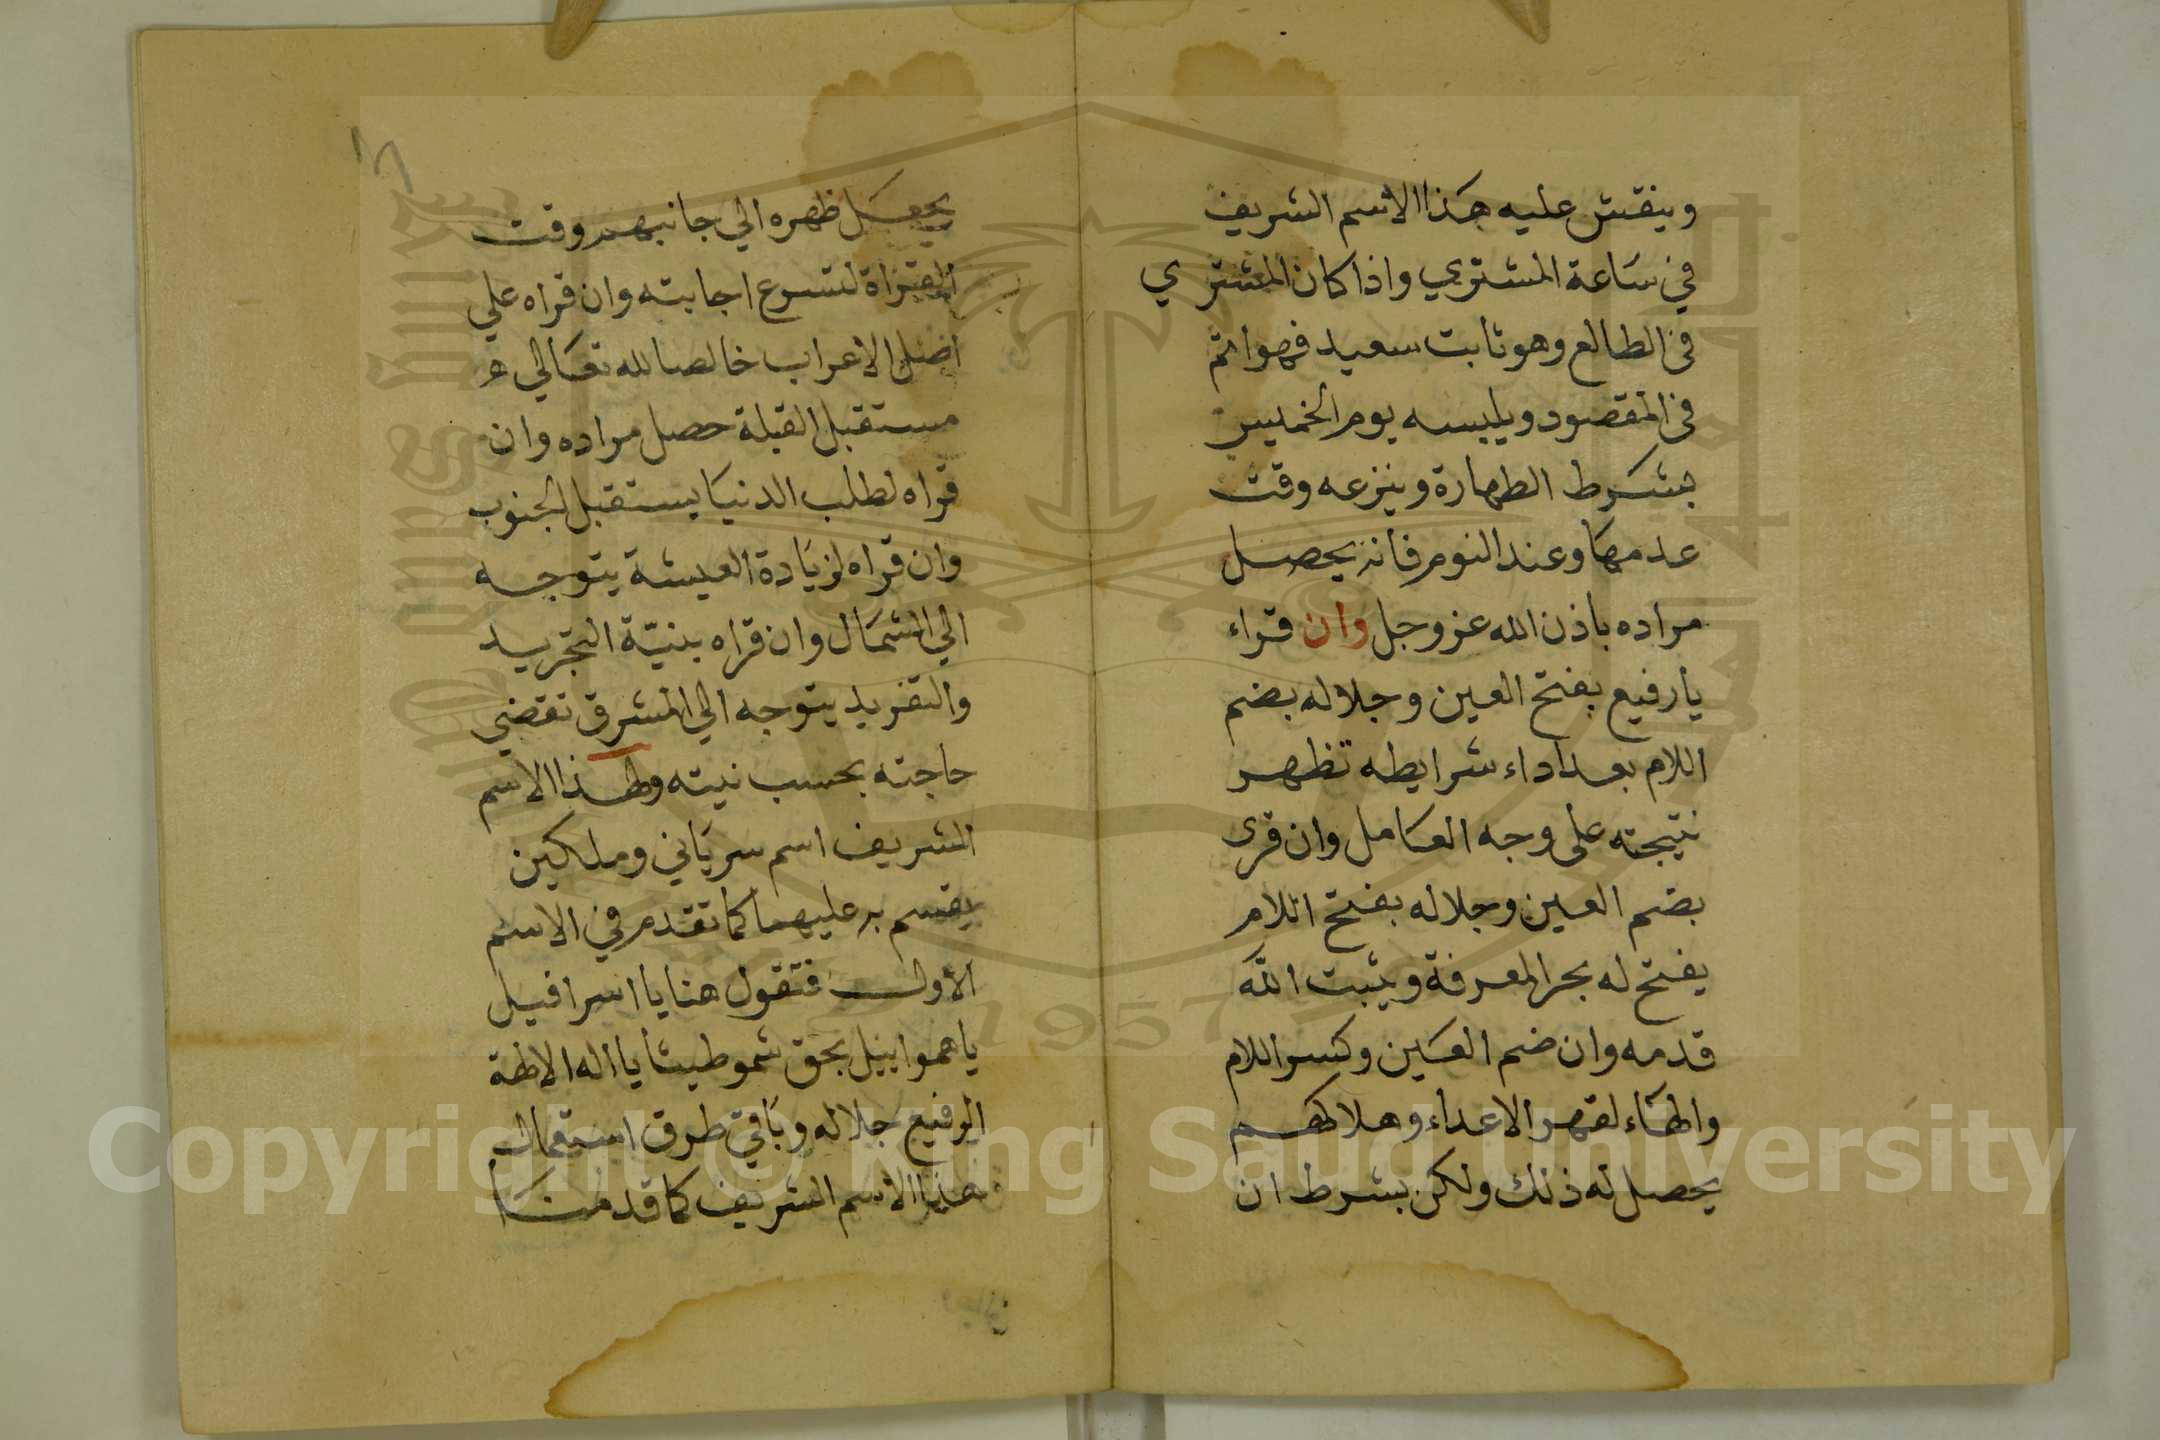 وينقش عليه هذا الاسم الشريف
في ساعة المشتري واذا كان المشتري
في الطالع وهو ثابت سعيد فهو اتم
في المقصود ويلبسه يوم الخميس
بشرط الطهارة وينزعه وقت
عدمها وعند النوم فانه يحصل
مراده باذن الله عز وجل وان قراء
يا رفيع بفتح العين وجلاله بضم
اللام بعد اداء شرايطه تظهر
نتيجته على وجه الكامل وان قرى
بضم العين وجلاله بفتح اللام
يفتح له بحر المعرفة ويثبت الله
قدمه وان ضم العين وكسر اللام
والهاء لقهر الاعداء وهلاكهم
يحصل له ذلك ولكن بشرط ان
يجعل ظهره الي جانبهم وقت
القراة لتسرع اجابته وان قراه علي
اصل الاعراب خالصا لله تعالي
مستقبل القبلة حصل مراده وان
قراه لطلب الدنيا يستقبل الجنوب
وان قراه لزيادة العيشة يتوجه
الي الشمال وان قراه بنية التجريد
والتفريد يتوجه الي المشرق تقضي
حاجته بحسب نيته ولهذا الاسم
الشريف اسم سرياني وملكين
يقسم به عليهما كما تقدم في الاسم
الاول فتقول هنا يا اسرافيل
يا همواييل بحق شموطيثا يا اله الالهة
الرفيع جلاله وباقي طرق استعمال
هذا الاسم الشريف كما قدمنا
Copyright © King Saud University
1957